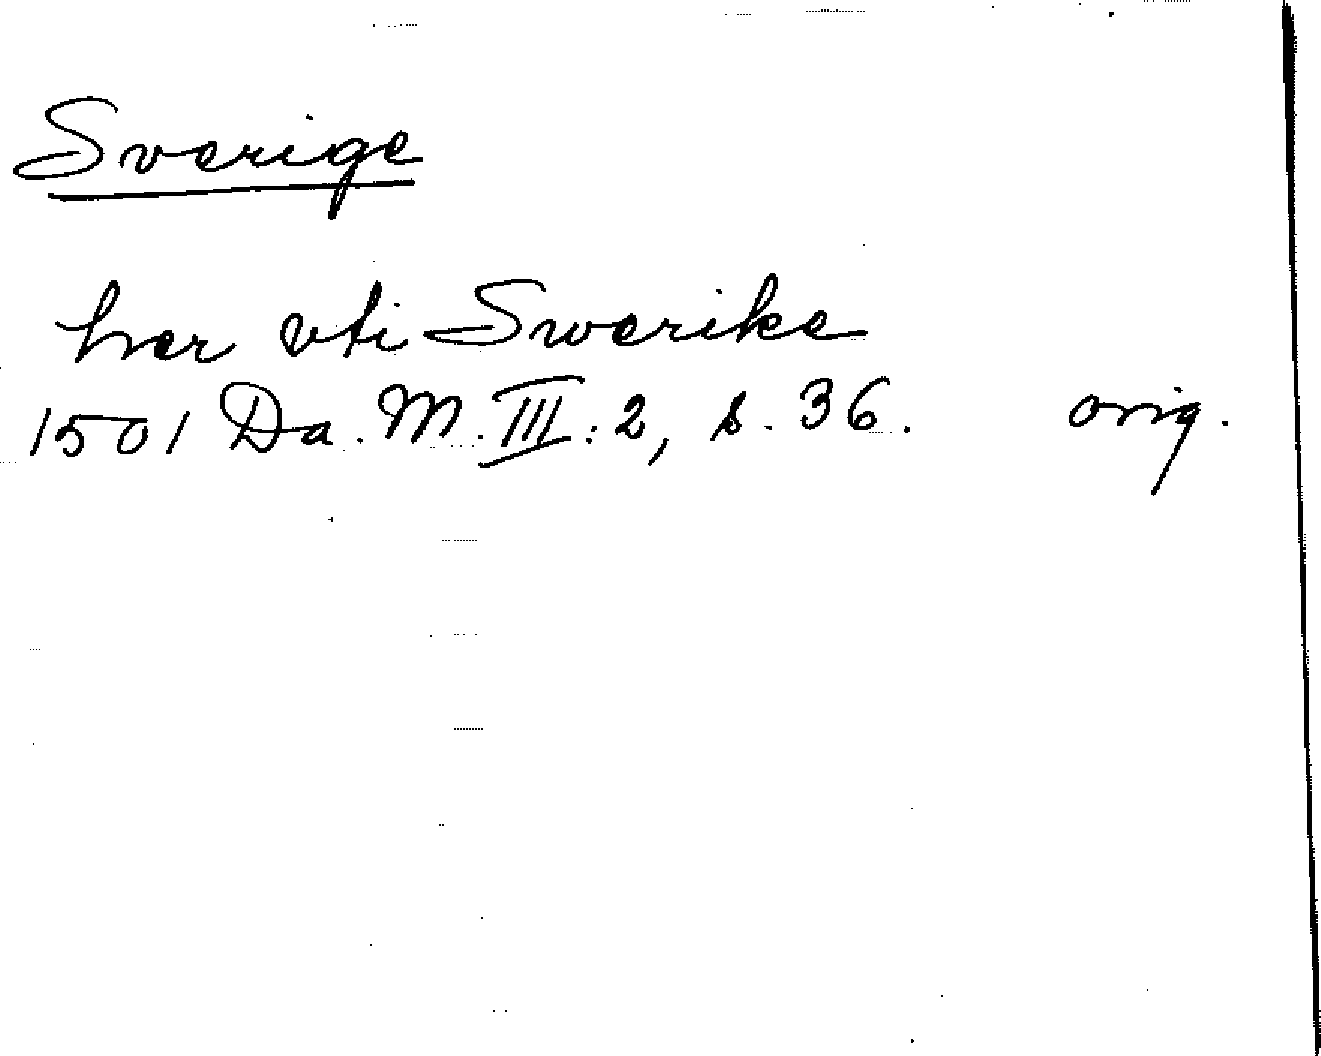 Sverige
hær vti Swerike
1501 Da. M. III: 2, s. 36. orig.